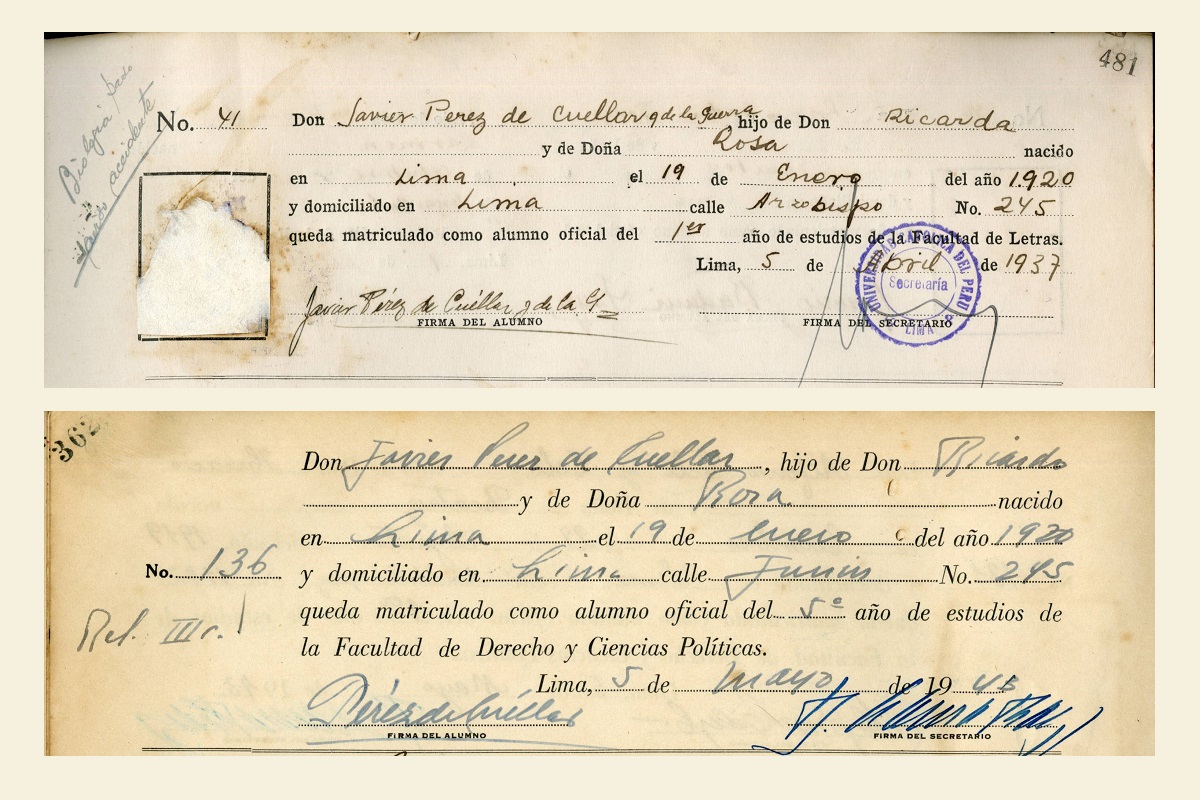 481
Biología
accidente
No. 41 Don Javier Perez de Cuellar y de la Guerra hijo de Don Ricardo
y de Doña Rosa nacido
en Lima el 19 de Enero del año 1920
y domiciliado en Lima calle Arzobispo No. 245
queda matriculado como alumno oficial del 1er año de estudios de la Facultad de Letras.
Lima, 5 de Abril de 1937
UNIVERSIDAD CATOLICA DEL PERU
Secretaría
LIMA
Javier Pérez de Cuéllar y de la G
FIRMA DEL ALUMNO FIRMA DEL SECRETARIO
362
Don Javier Perez de Cuellar, hijo de Don Ricardo
y de Doña Rosa nacido
en Lima el 19 de enero del año 1920
No. 136 y domiciliado en Lima calle Junin No. 245
queda matriculado como alumno oficial del 5º año de estudios de
Rel. III r.
la Facultad de Derecho y Ciencias Políticas.
Lima, 5 de Mayo de 19
Pérez de Cuéllar
FIRMA DEL ALUMNO FIRMA DEL SECRETARIO